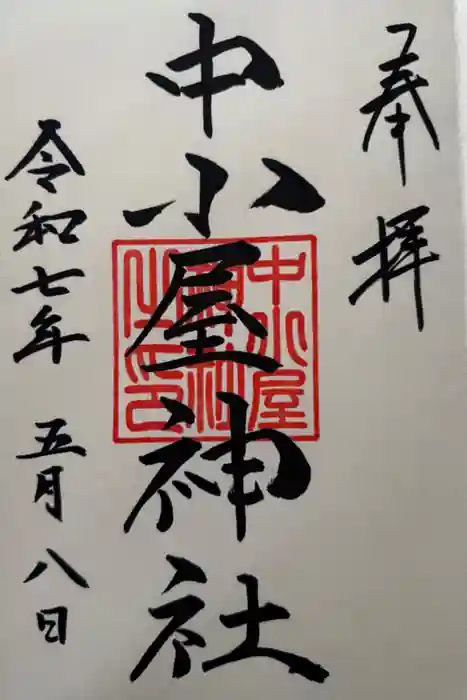 奉拝
中小屋神社
中小屋
神社
之印
令和七年 五月八日